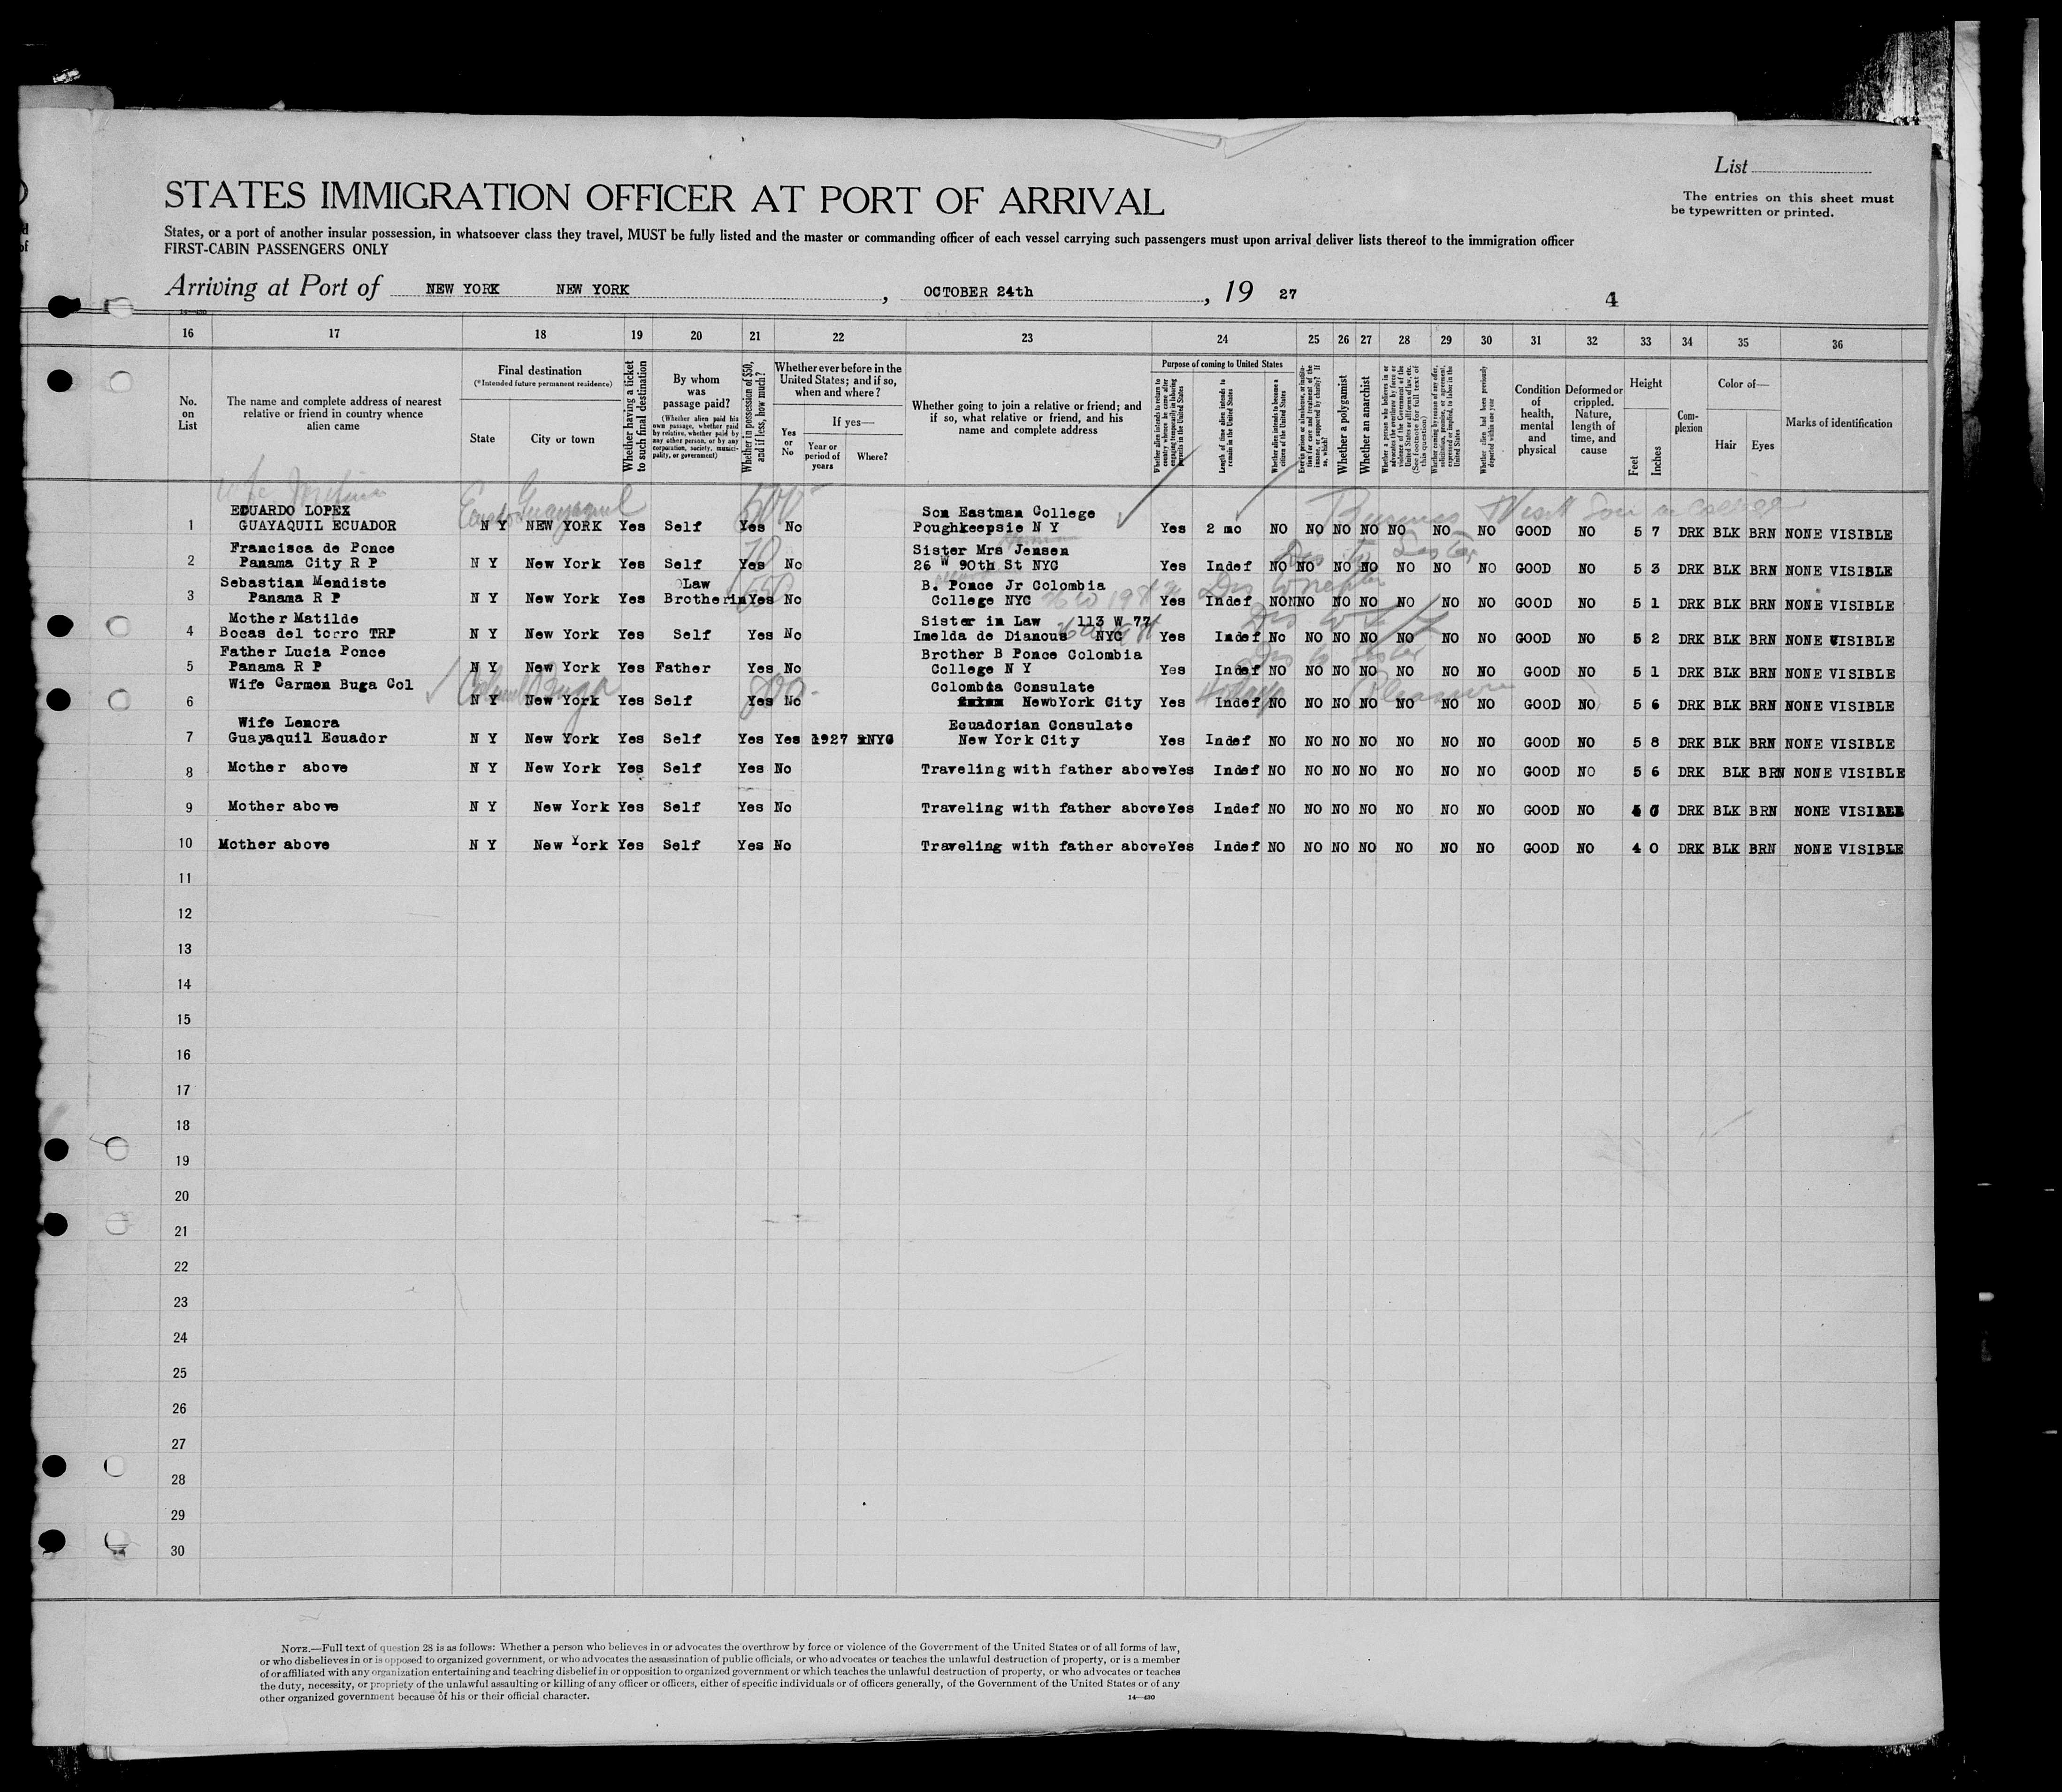 List
The entries on this sheet must
be typewritten or printed.
STATES IMMIGRATION OFFICER AT PORT OF ARRIVAL
States, or a port of another insular possession, in whatsoever class they travel, MUST be fully listed and the master or commanding officer of each vessel carrying such passengers must upon arrival deliver lists thereof to the immigration officer
FIRST-CABIN PASSENGERS ONLY
Arriving at Port of NEW YORK NEW YORK, OCTOBER 24th, 19 27
4
16 17 18 19 20 21 22 23 24 25 26 27 28 29 30 31 32 33 34 35 36
No. on List
The name and complete address of nearest relative or friend in country whence alien came
Final destination
(*Intended future permanent residence)
State
City or town
Whether having a ticket to such final destination
By whom was passage paid?
(Whether alien paid his own passage, whether paid by relative, whether paid by any other person, or by any corporation, society, municipality, or government)
Whether in possession of $50, and if less, how much?
Whether ever before in the United States; and if so, when and where?
Yes or No
If yes—
Year or period of years
Where?
Whether going to join a relative or friend; and if so, what relative or friend, and his name and complete address
Purpose of coming to United States
Whether alien intends to return to country whence he came after engaging temporarily in laboring pursuits in the United States
Length of time alien intends to remain in the United States
Whether alien intends to become a citizen of the United States
Whether a polygamist
Whether an anarchist
Whether alien had been previously deported within one year
Condition of health, mental and physical
Deformed or crippled. Nature, length of time, and cause
Height
Feet
Inches
Com-plexion
Color of—
Hair
Eyes
Marks of identification
Business Visit Son in College
EDUARDO LOPEX Son Eastman College
1 GUAYAQUIL ECUADOR N Y NEW YORK Yes Self Yes No Poughkeepsie N Y Yes 2 mo NO NO NO NO NO NO NO GOOD NO 5 7 DRK BLK BRN NONE VISIBLE
Francisca de Ponce Sister Mrs Jensen
2 Panama City R P N Y New York Yes Self Yes No 26 W 90th St NYC Yes Indef NO NO NO NO NO NO NO GOOD NO 5 3 DRK BLK BRN NONE VISIBLE
Sebastian Mendiste Law B. Ponce Jr Colombia
3 Panama R P N Y New York Yes Brother in Yes No College NYC Yes Indef NO NO NO NO NO NO NO GOOD NO 5 1 DRK BLK BRN NONE VISIBLE
Mother Matilde Sister in Law 113 W 77
4 Bocas del torro TRP N Y New York Yes Self Yes No Imelda de Dianous NYC Yes Indef No NO NO NO NO NO NO GOOD NO 5 2 DRK BLK BRN NONE VISIBLE
Father Lucia Ponce Brother B Ponce Colombia
5 Panama R P N Y New York Yes Father Yes No College N Y Yes Indef NO NO NO NO NO NO NO GOOD NO 5 1 DRK BLK BRN NONE VISIBLE
Wife Carmen Buga Col Colombia Consulate
6 N Y New York Yes Self Yes No NewbYork City Yes Indef NO NO NO NO NO NO NO GOOD NO 5 6 DRK BLK BRN NONE VISIBLE
Pleasure
Wife Lenora Ecuadorian Consulate
7 Guayaquil Ecuador N Y New York Yes Self Yes Yes 1927 NYC New York City Yes Indef NO NO NO NO NO NO NO GOOD NO 5 8 DRK BLK BRN NONE VISIBLE
8 Mother above N Y New York Yes Self Yes No Traveling with father above Yes Indef NO NO NO NO NO NO NO GOOD NO 5 6 DRK BLK BRN NONE VISIBLE
9 Mother above N Y New York Yes Self Yes No Traveling with father above Yes Indef NO NO NO NO NO NO NO GOOD NO DRK BLK BRN NONE VISIBLE
10 Mother above N Y New York Yes Self Yes No Traveling with father above Yes Indef NO NO NO NO NO NO NO GOOD NO 4 0 DRK BLK BRN NONE VISIBLE
11
12
13
14
15
16
17
18
19
20
21
22
23
24
25
26
27
28
29
30
NOTE.—Full text of question 28 is as follows: Whether a person who believes in or advocates the overthrow by force or violence of the Government of the United States or of all forms of law,
or who disbelieves in or is opposed to organized government, or who advocates the assassination of public officials, or who advocates or teaches the unlawful destruction of property, or is a member
of or affiliated with any organization entertaining and teaching disbelief in or opposition to organized government or which teaches the unlawful destruction of property, or who advocates or teaches
the duty, necessity, or propriety of the unlawful assaulting or killing of any officer or officers, either of specific individuals or of officers generally, of the Government of the United States or of any
other organized government because of his or their official character.
14—430